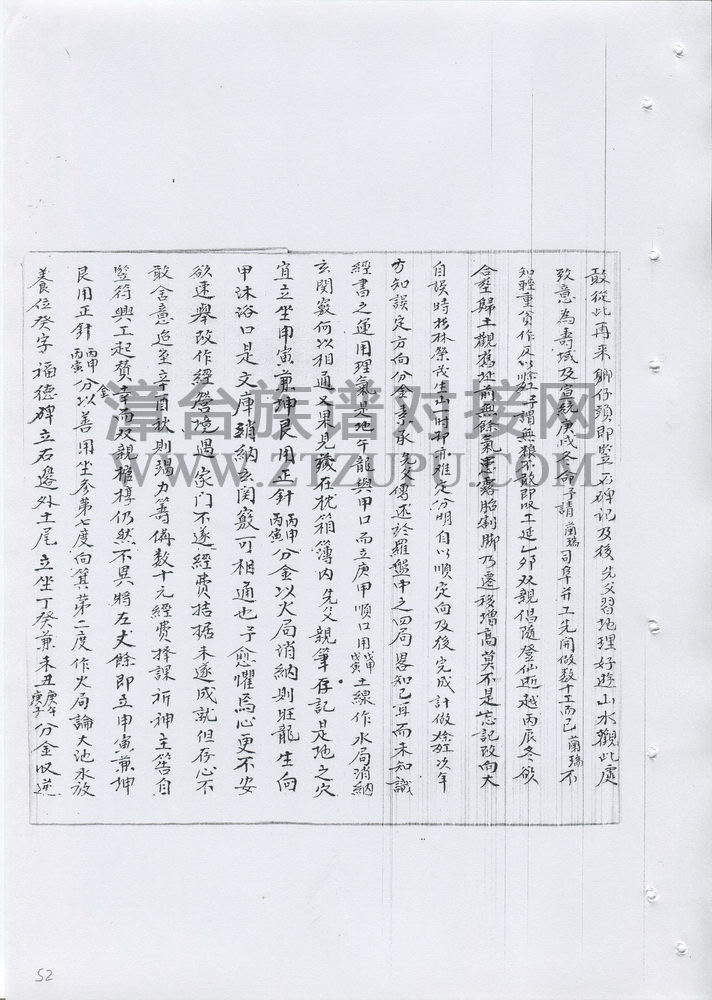 敢從此再来獅仔頭即豎石碑記及後先父習地理好遊山水觀此處
致意為壽域及宣統庚戌冬命予請蘭瑞司阜并工先開做数十工而已蘭瑞不
知輕重貧作反以餘託予謂無根不敢即改工延乙卯双親倡隨登仙逝越丙辰冬欲
合塟歸土觀舊址前無餘氣患露胎剝脚乃遷移增高莫不是忘記改向大
自誤時樹林榮茂生山一时即亦难定分明自以順定向及後完成計做餘次年
方知誤定方向分金素承先父傳述於羅盤中之四局畧知己耳而未知識
經書之運用理氣走地午龍與甲口而立庚甲順口用戊申戊寅土線作水局消納
玄関竅何以相通又果見殘在枕箱簿内先父親筆存記是地之穴
宜立坐甲寅兼坤艮用正針丙申丙寅分金以火局消納則旺龍生向
甲沐浴口是文庫銷納玄関竅可相通也予愈懼焉心更不安
欲速舉改作經營境遇家门不遂經費拮据未遂成就但存心不
敢舍意迨至辛酉秋則竭力籌備数十元經費擇課祈神主筶自
豎符興工起攢幸而双親椎棹仍然不異將左丈餘即立甲寅兼坤
艮用正針丙申丙寅分金以善用坐參第七度向箕第二度作火局論大池水放
養位癸字福德碑立石邊外土尾立坐丁癸兼未丑庚午庚子分金収逆
漳台族谱对接网
WWW.ZTZUPU.COM
52